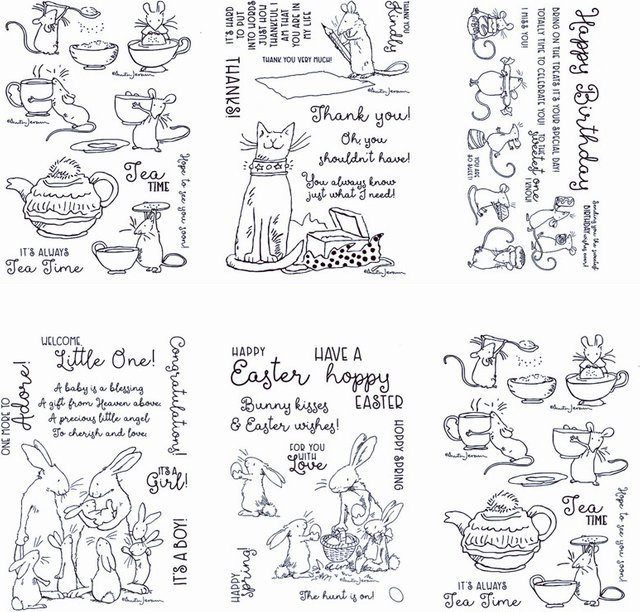 Tea
TIME
Hope to see you soon!
IT'S ALWAYS
Tea Time
IT'S HARD
TO PUT
INTO WORDS
JUST HOW
THANKFUL I
AM THAT
YOU ARE IN
MY LIFE
THANK YOU
Kindly
THANK YOU VERY MUCH!
THANKS!
Thank you!
Oh, you
shouldn't have!
You always know
just what I need!
Happy Birthday
BRING ON THE TREATS IT'S YOUR SPECIAL DAY!
TOTALLY TIME TO CELEBRATE YOU!
I MISS YOU!
TO THE
sweetest one
I KNOW!
YOU ARE
SO BUSY!
Sending you the sweetest
BIRTHDAY
wishes ever!
WELCOME,
Little One!
A baby is a blessing
A gift from Heaven above.
A precious little angel
To cherish and love.
ONE MORE TO
Adore!
Congratulations!
IT'S A
Girl!
IT'S A BOY!
HAPPY
Easter
HAVE A
hoppy
EASTER
Bunny kisses
& Easter wishes!
FOR YOU
WITH
Love
HOPPY SPRING
HAPPY
Spring!
The hunt is on!
Tea
TIME
Hope to see you soon!
IT'S ALWAYS
Tea Time